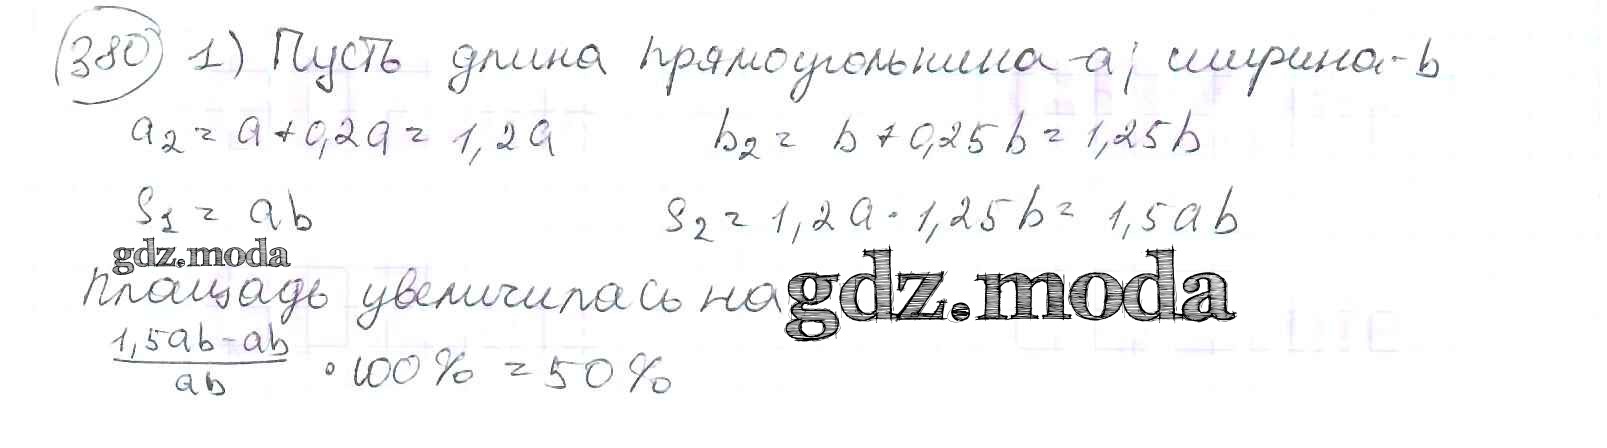 380 1) Пусть длина прямоугольника - a; ширина - b
a₂ = a + 0,2a = 1,2a b₂ = b + 0,25b = 1,25b
S₁ = ab S₂ = 1,2a · 1,25b = 1,5ab
gdz.moda
площадь увеличилась на gdz.moda
(1,5ab - ab)/ab · 100% = 50%